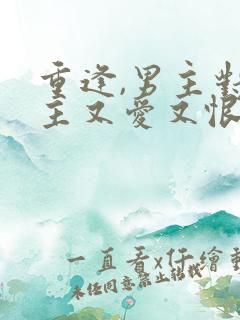 重逢,男主對
主又愛又恨
一直看x仔繪動
未经同意禁止转载